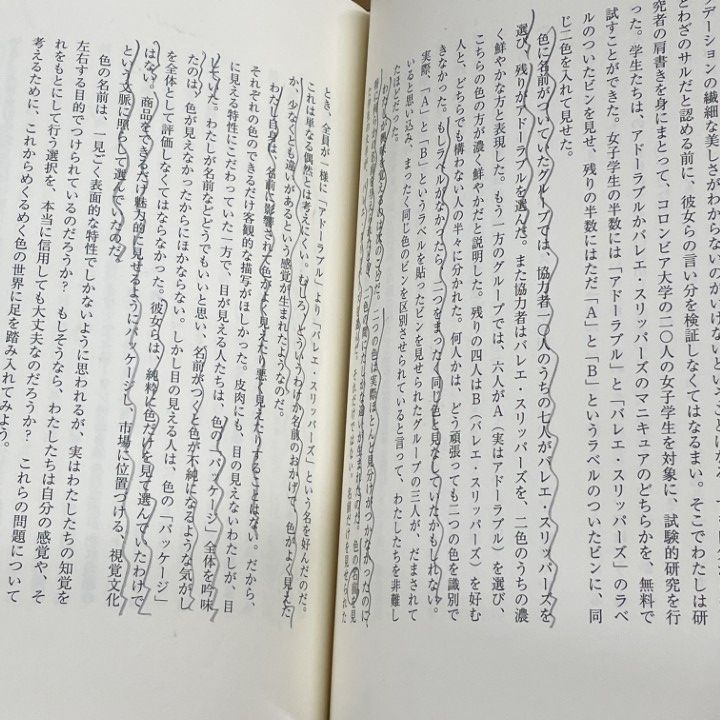 デーションの繊細な美しさがわかる
とわざのサルだと認める前に、彼女らの言い分を検証しなくてはなるまい。そこでわたしは研
究者の肩書きを身にまとって、コロンビア大学の二〇人の女子学生を対象に、試験的研究を行
った。学生たちは、アドーラブルかバレエ・スリッパーズのマニキュアのどちらかを、無料で
試すことができた。女子学生の半数には「アドーラブル」と「バレエ・スリッパーズ」のラベ
ルのついたビンを見せ、残りの半数にはただ「A」と「B」というラベルのついたビンに、同
じ二色を入れて見せた。
色に名前がついていたグループでは、協力者一〇人のうちの七人がバレエ・スリッパーズを
選び、残りがアドーラブルを選んだ。また協力者はバレエ・スリッパーズを、二色のうちの濃
く鮮やかな方と表現した。もう一方のグループでは、六人がA（実はアドーラブル）を選び、
こちらの色の方が濃く鮮やかだと説明した。残りの四人はB（バレエ・スリッパーズ）を好む
人と、どちらでも構わない人の半々に分かれた。何人かは、どう頑張っても二つの色を識別で
きなかった。もしラベルがなかったら、二つをまったく同じ色と見なしていたかもしれない。
実際、「A」と「B」というラベルを貼ったビンを見せられたグループの三人が、だまされて
いると思い込み、まったく同じ色のビンを区別させられていると言って、わたしたちを非難し
たほどだった。
二つの色は実際ほとんど見分けがつかなかったのに、
とき、全員が一様に「アドーラブル」より「バレエ・スリッパーズ」という名を好んだのだ。
これは単なる偶然とは考えにくい。むしろ、どういうわけか名前のおかげで、色がよく見えた
か、少なくとも違いがあるという感覚が生まれたようなのだ。
わたし自身は、名前に影響されて色がよく見えたり悪く見えたりすることはない。だから、
それぞれの色のできるだけ客観的な描写がほしかった。皮肉にも、目の見えないわたしが、目
に見える特性にこだわっていた一方で、目が見える人たちは、色の「パッケージ」全体を吟味
していた。わたしが名前などどうでもいいと思い、名前がつくと色が不純になるような気がし
たのは、色が見えなかったからにほかならない。しかし目の見える人は、色の「パッケージ」
を全体として評価しなくてはならなかった。彼女らは、純粋に色だけを見て選んでいたわけで
はない。商品をできるだけ魅力的に見せるようにパッケージし、市場に位置づける、視覚文化
という文脈に照らして選んでいたのだ。
色の名前は、一見ごく表面的な特性でしかないように思われるが、実はわたしたちの知覚を
左右する目的でつけられているのだろうか？　もしそうなら、わたしたちは自分の感覚や、そ
れをもとにして行う選択を、本当に信用しても大丈夫なのだろうか？　これらの問題について
考えるために、これからめくるめく色の世界に足を踏み入れてみよう。